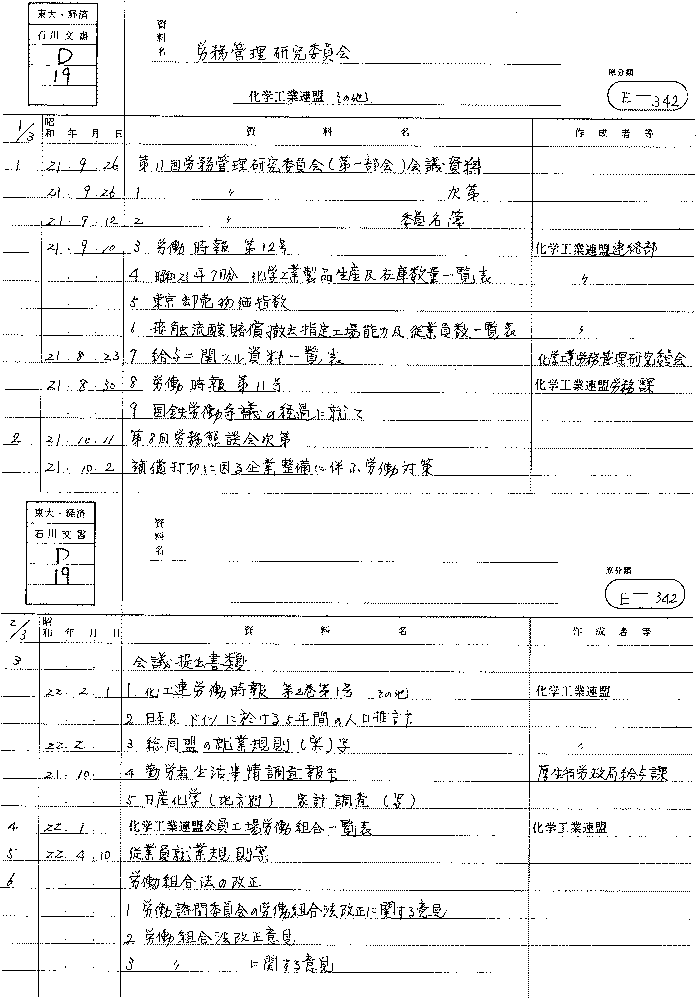 東大・経済
石川文書
D
19
資料名
労務管理研究委員会
化学工業連盟 その他
原分類
E-342
1/3 昭和 年 月 日 資料名 作成者等
1 21・9・26 第11回労務管理研究委員会(第一部会)会議資料
21・9・26 1 〃 次第
21・9・12 2 〃 委員名簿
21・9・10 3 労働時報 第12号 化学工業連盟連絡部
4 昭和21年7月分 化学工業製品生産及在庫数量一覧表 〃
5 東京卸売物価指数
6 接触硫酸賠償撤去指定工場能力及従業員数一覧表 〃
21・8・23 7 給与ニ関スル資料一覧表 化学工業労務管理研究委員会
21・8・30 8 労働時報第11号 化学工業連盟労務課
9 国鉄労働争議の経過に就て
2 21・10・11 第8回労務懇談会次第
21・10・2 補償打切に因る企業整備に伴ふ労働対策
東大・経済
石川文書
D
19
資料名
原分類
E-342
2/3 昭和 年 月 日 資料名 作成者等
3 会議提出書類
22・2・1 1 化工連労働時報 第2巻第1号 その他 化学工業連盟
2 日本及ドイツに於ける5年間の人口推計
22・2 3 総同盟の就業規則(案)等 〃
21・10 4 勤労者生活事情調査報告 厚生省労政局給与課
5 日産化学(地方別) 家計調査(写)
4 22・1 化学工業連盟会員工場労働組合一覧表 化学工業連盟
5 22・4・10 従業員就業規則案
6 労働組合法の改正
1 労働諮問委員会の労働組合法改正に関する意見
2 労働組合法改正意見
3 〃 に関する意見